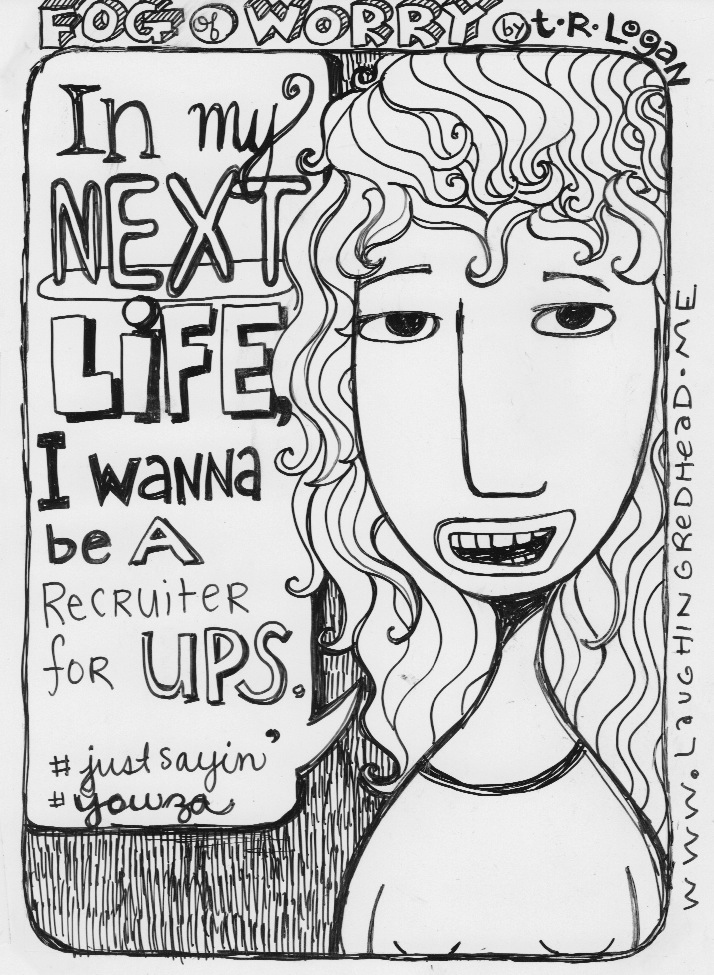 FOG of WORRY by t.R.Logan
In my
NEXT
LiFE,
I waNNa
be A
RecRuiteR
foR UPS.
#justsayin'
#yowza
www.LauGHINGReDHeaD.ME